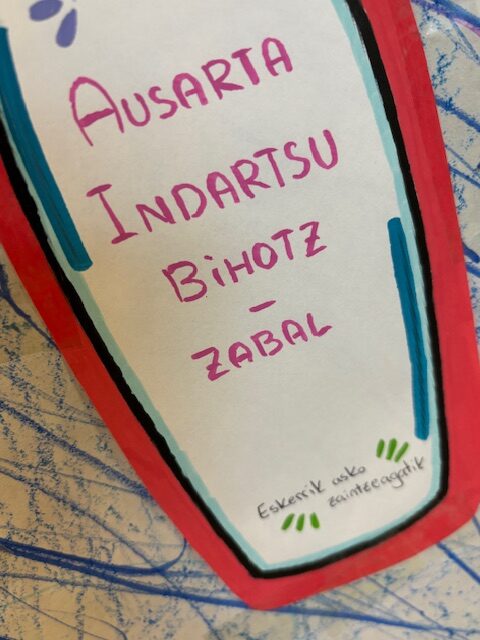 AUSARTA
INDARTSU
BiHOTZ
-
ZABAL
Eskerrik asko
zaintzeagatik